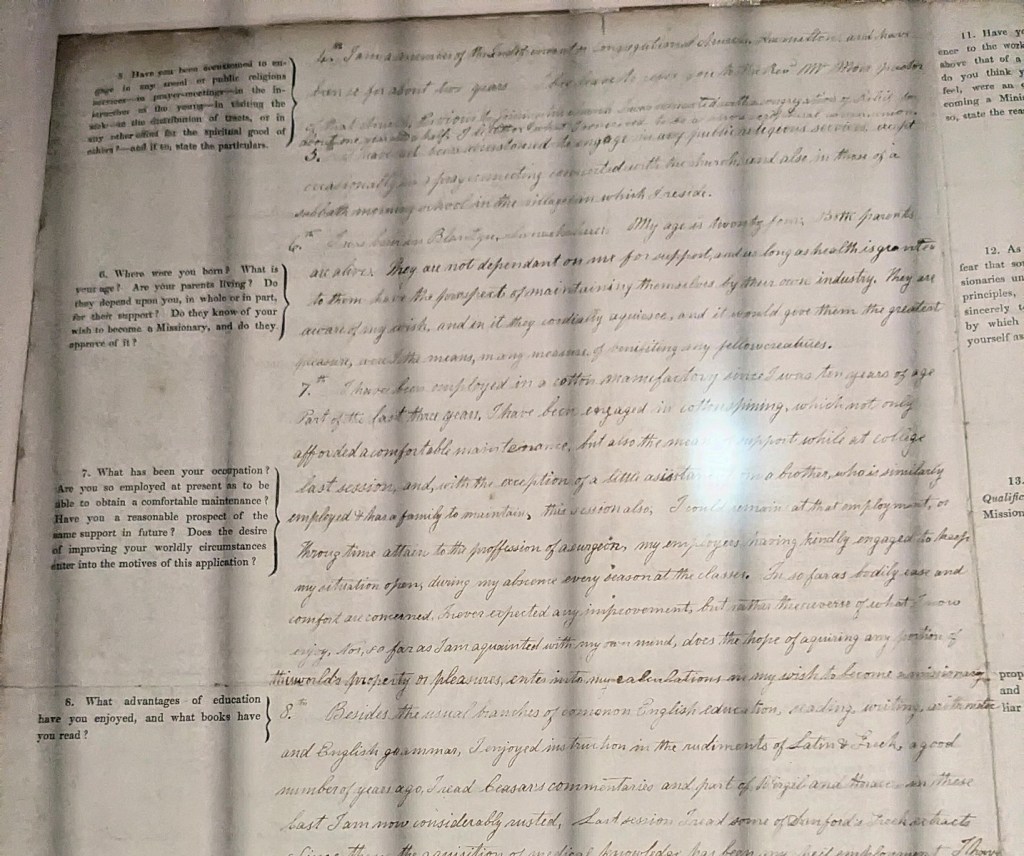 5. Have you been accustomed to en-
gage in any usual or public religious
services—in prayer-meetings—in the in-
struction of the young—in visiting the
sick—in the distribution of tracts, or in
any other effort for the spiritual good of
others?—and if so, state the particulars.
6. Where were you born? What is
your age? Are your parents living? Do
they depend upon you, in whole or in part,
for their support? Do they know of your
wish to become a Missionary, and do they
approve of it?
7. What has been your occupation?
Are you so employed at present as to be
able to obtain a comfortable maintenance?
Have you a reasonable prospect of the
same support in future? Does the desire
of improving your worldly circumstances
enter into the motives of this application?
8. What advantages of education
have you enjoyed, and what books have
you read?
4th I am a member of the Independent or Congregational church, Hamilton, and have
been so for about two years. I beg leave to refer you to the Revd Mr Moir pastor
of that church. Previous to joining
about one year and a half. I
5. I have not been accustomed to engage in any public religious services except
occasionally in a prayer meeting connected with the church, and also in those of a
sabbath morning school in the village in which I reside.
6th I was born in Blantyre, Lanarkshire. My age is twenty four. Both parents
are alive. They are not dependant on me for support, and as long as health is granted
to them have the prospect of maintaining themselves by their own industry. They are
aware of my wish, and in it they cordially aquiesce, and it would give them the greatest
pleasure, were I the means, in any measure, of benifiting my fellowcreatures.
7th I have been employed in a cotton manufactory since I was ten years of age
Part of the last three years, I have been engaged in cottonspining, which not only
afforded a comfortable maintenance, but also the means support while at college
last session, and, with the exception of a little assistance from a brother, who is similarly
employed & has a family to maintain, this session also, I could remain at that employment, or
through time attain to the proffession of a surgeon, my employers having kindly engaged to keep
my situation open, during my absence every season at the classes. In so far as bodily ease and
comfort are concerned, I never expected any improvement, but rather the reverse of what I now
enjoy, nor, so far as I am aquainted with my own mind, does the hope of aquiring any portion of
this world's property or pleasures, enter into my calculations in my wish to become a missionary
8.th Besides the usual branches of common English education, reading, writing, arithmetic
and English grammar, I enjoyed instruction in the rudiments of Latin & Greek, a good
number of years ago, I read Ceasar's commentaries and part of Virgil and Horace in these
last I am now considerably rusted, Last session I read some of Sanford's Greek extracts
Since then the aquisition of medical knowledge has been my chief employment I have
11. Have
ence to the work
above that of a
do you think
feel, were an
coming a Mini
so, state the rea
12. As
fear that so
sionaries un
principles,
sincerely
by which
yourself as
13.
Qualific
Mission
prop
and
liar